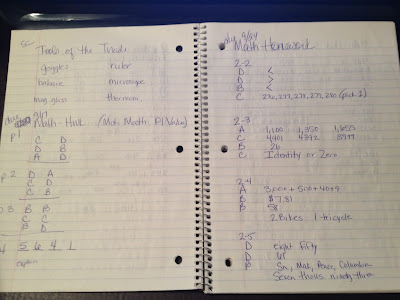 Sc.
Tools of the Trade
goggles ruler
balance microscope
mag. glass thermom.
Math - Hmk (Mod. Math, Pl Value)
P1
C D
D B
A D
p2 D A
C D
C B
p3 B B
C C
D B
4 5 6 4 1
explain
9/24
Math Homework
2-2
D <
D >
B <
C 276, 277, 278, 279, 280 (pick 1)
2-3
A 1,100 1,350 1,655
C 4401
B 26
C Identity or Zero
2-4
A 3,000 + 500 + 40 + 9
B $7.31
B 58
2 Bikes 1 tricycle
2-5
D eight fifty
D up
B Sn, Mak, Peace, Columbia
Seven thous. ninety-three